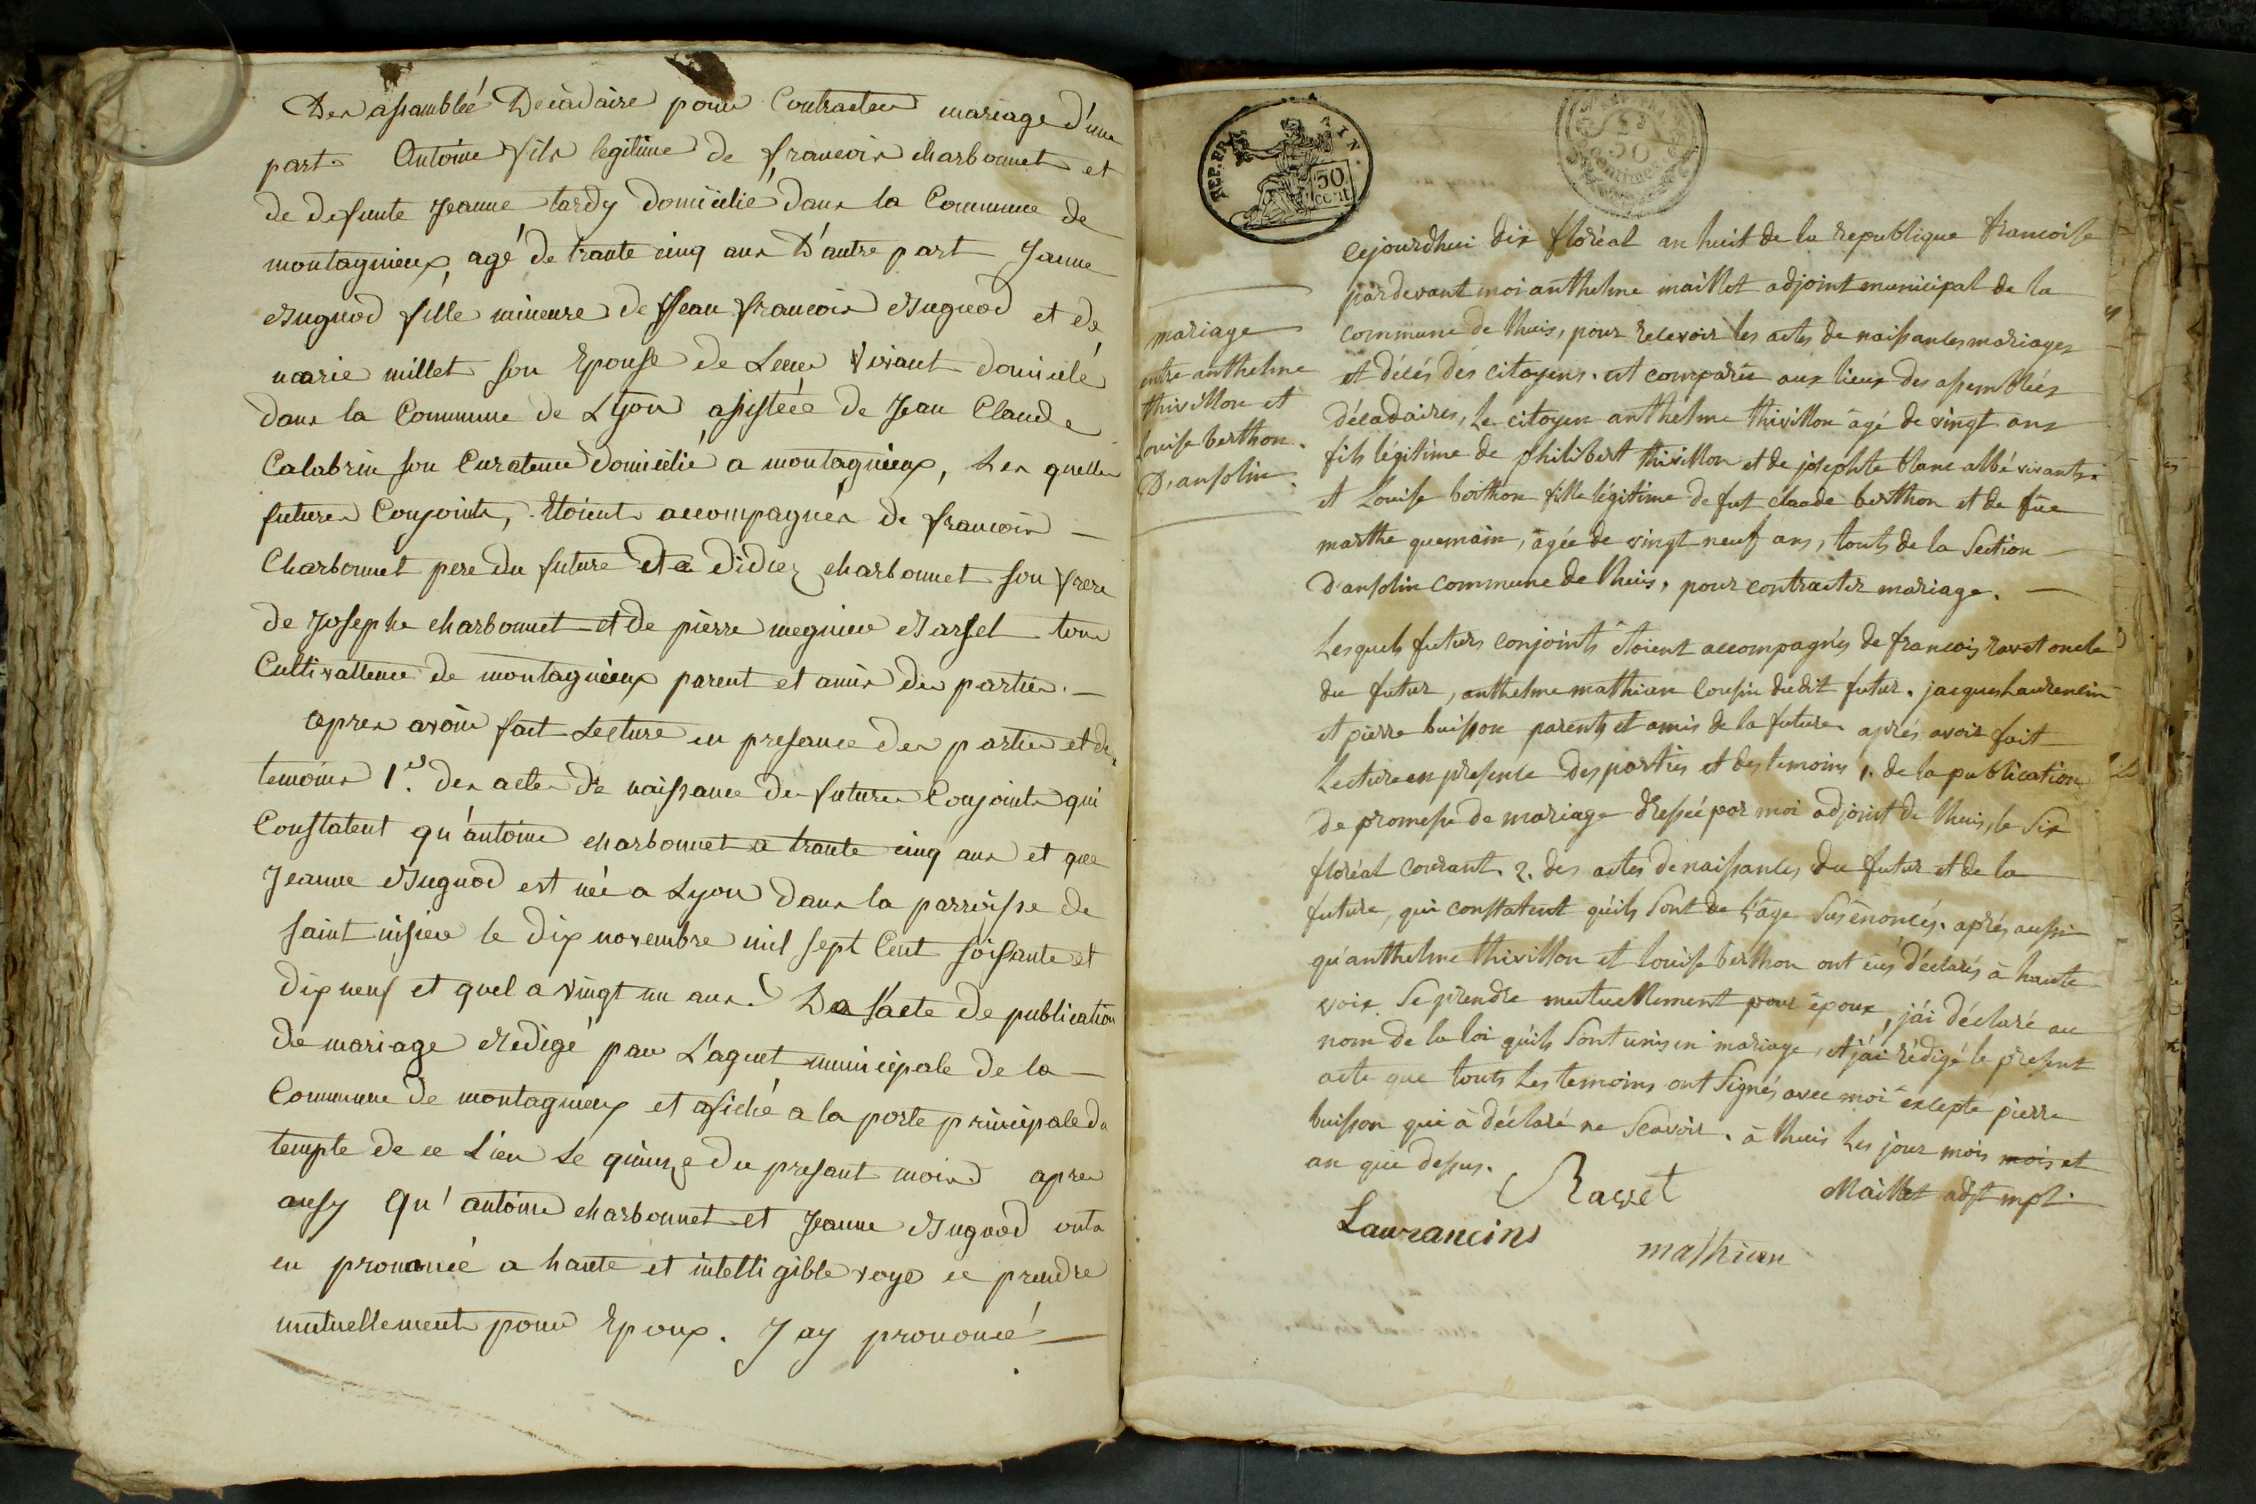 Des assamblée Decadaire pour Contracter mariage d'une
part Antoine fils legitime de francois charbonnet et
de defunte Jeanne tardy domicilié dans la Commune de
montagnieux, agé de trante cinq ans D'autre part Jeanne
Bugnod fille mineure de Jean francois Bugnod et de
marie millet son Epouse de Leur vivant domicilé
dans la Commune de Lyon asistéée de Jean Claude
Calabrin son Curateur domicilié a montagnieux, Les quelles
futures Conjoints, Etoients accompagnés de francois
Charbonnet pere du future et a didiez charbonnet son frere
de Josephe charbonnet et de pierre megnieu Barsel tous
Cultivatteur de montagnieux parent et amis des parties.
apres avoir fait Lecture en presance des parties et des
temoins 1.er des actes de naissance des futures Conjoints qui
Constatent qu'antoine charbonnet a trante cinq ans et que
Jeanne Bugnod est née a Lyon dans la parroisse de
saint nisier le dix novembre mil sept Cent soissante et
dix neuf et quel a vingt un ans. De l'acte de publication
de mariage Redigé par L'agent municipale de la
Commune de montagnieux et afiché a la porte principale du
temple de ce Lieu Le quinze du presant mois apres
ausy qu'antoine charbonnet et Jeanne Bugnod onts
eu prononcé a haute et intelligible voye ce prendre
mutuellement pour Epoux. J ay prononcé
REP. FRA. AIN.
50 cent
50
centimes
mariage
entre anthelme
thivillon et
Louise berthon.
D'ansolin.
Cejourdhui dix floréal an huit de la republique francoise
pardevant moi anthelme maillet adjoint municipal de la
commune de thuis, pour recevoir les actes de naissances mariages
et décés des citoyens. est comparu aux lieux des assemblées
décadaires, Le citoyen anthelme thivillon âgé de vingt ans
fils légitime de philibert thivillon et de josephte blanc albé vivants.
et Louise berthon fille légitime de fut claude berthon et de fue
marthe quemain, âgée de vingt neuf ans, touts de la Section
d'ansolin commune de thuis, pour contracter mariage.
Lesquels futurs conjoints étoient accompagnés de francois ravet oncle
du futur, anthelme mathian Cousin dudit futur. jacques Laurencin
et pierre buisson parents et amis de la future après avoir fait
Lecture en presence des parties et des temoins 1. de la publication
de promesse de mariage dressée par moi adjoint de thuis, le Six
floréal courant. 2. des actes de naissances du futur et de la
future, qui constatent qu'ils Sont de L'âge Sus énoncés. après aussi
qu'anthelme thivillon et Louise berthon ont eus déclarés à haute
voix Se prendre mutuellement pour époux, j'ai déclaré au
nom de la loi qu'ils Sont unis en mariage, et j'ai rédigé le present
acte que touts Les temoins ont Signés avec moi excepté pierre
buisson qui à déclaré ne Scavoir. à thuis Les jour mois mois et
an que dessus.
Ravet
Maillet adjt mpl.
Laurancins
mathian